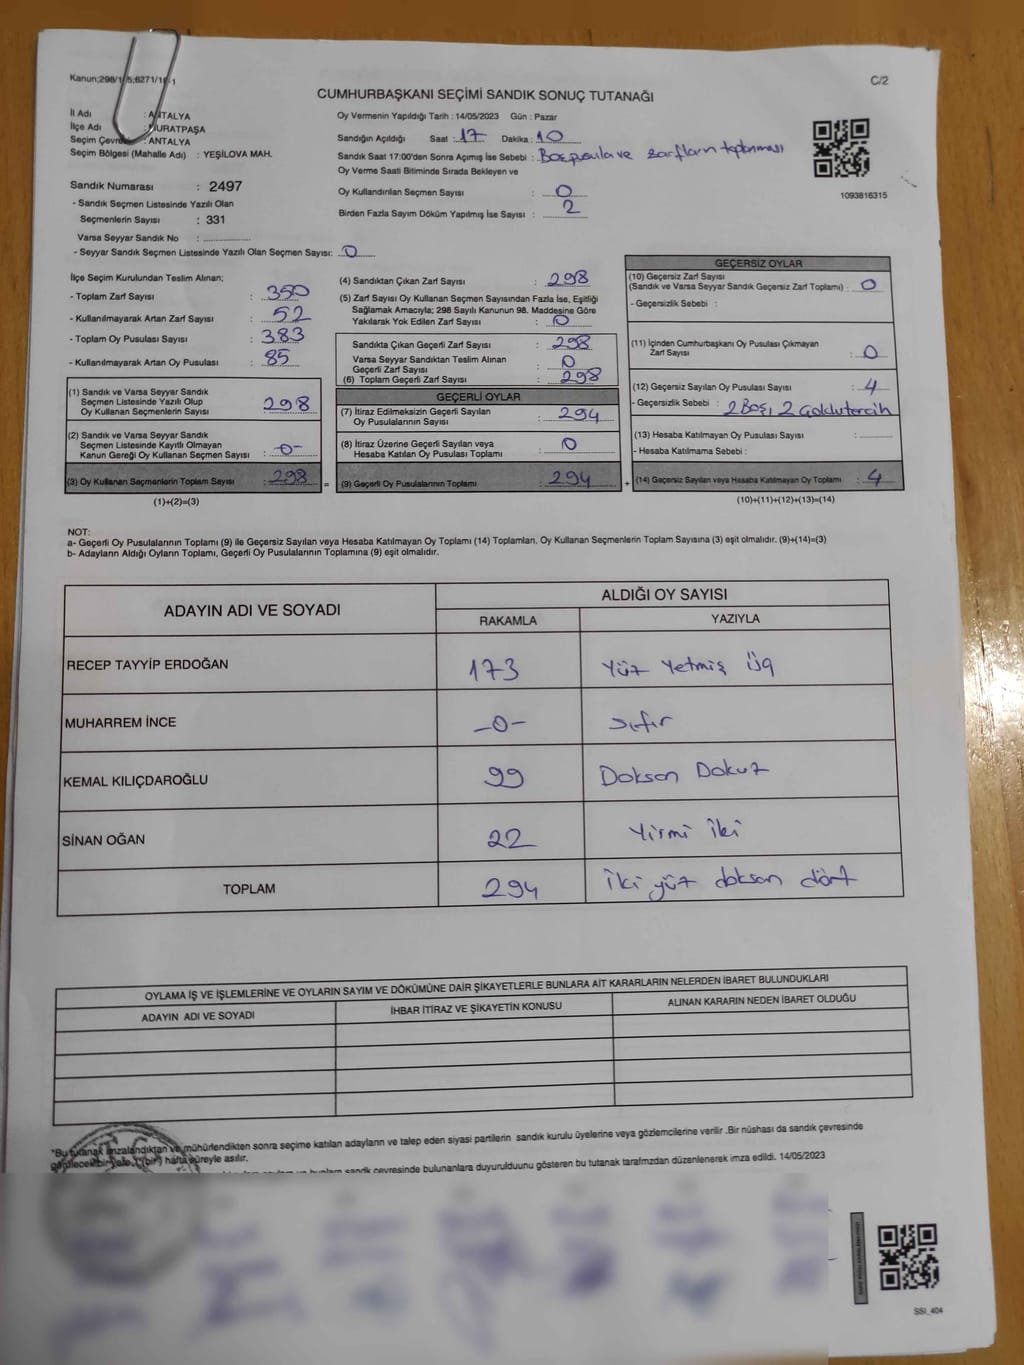 Kanun;298/1 5;6271/1 -1
C/2
CUMHURBAŞKANI SEÇİMİ SANDIK SONUÇ TUTANAĞI
İl Adı : ANTALYA
İlçe Adı : MURATPAŞA
Seçim Çevresi : ANTALYA
Seçim Bölgesi (Mahalle Adı) : YEŞİLOVA MAH.
Sandık Numarası : 2497
- Sandık Seçmen Listesinde Yazılı Olan
Seçmenlerin Sayısı : 331
Varsa Seyyar Sandık No :
- Seyyar Sandık Seçmen Listesinde Yazılı Olan Seçmen Sayısı: 0
Oy Vermenin Yapıldığı Tarih : 14/05/2023 Gün : Pazar
Sandığın Açıldığı Saat : 17 Dakika : 10
Sandık Saat 17:00'den Sonra Açımış İse Sebebi : ve zarfların toplanması
Oy Verme Saati Bitiminde Sırada Bekleyen ve
Oy Kullandırılan Seçmen Sayısı : 0
Birden Fazla Sayım Döküm Yapılmış İse Sayısı : 2
1093816315
İlçe Seçim Kurulundan Teslim Alınan;
- Toplam Zarf Sayısı : 350
- Kullanılmayarak Artan Zarf Sayısı : 52
- Toplam Oy Pusulası Sayısı : 383
- Kullanılmayarak Artan Oy Pusulası : 85
(1) Sandık ve Varsa Seyyar Sandık
Seçmen Listesinde Yazılı Olup
Oy Kullanan Seçmenlerin Sayısı : 298
(2) Sandık ve Varsa Seyyar Sandık
Seçmen Listesinde Kayıtlı Olmayan
Kanun Gereği Oy Kullanan Seçmen Sayısı : -0-
(3) Oy Kullanan Seçmenlerin Toplam Sayısı : 298
(1)+(2)=(3)
(4) Sandıktan Çıkan Zarf Sayısı : 298
(5) Zarf Sayısı Oy Kullanan Seçmen Sayısından Fazla İse, Eşitliği
Sağlamak Amacıyla; 298 Sayılı Kanunun 98. Maddesine Göre
Yakılarak Yok Edilen Zarf Sayısı : 0
Sandıkta Çıkan Geçerli Zarf Sayısı : 298
Varsa Seyyar Sandıktan Teslim Alınan
Geçerli Zarf Sayısı : 0
(6) Toplam Geçerli Zarf Sayısı : 298
GEÇERLİ OYLAR
(7) İtiraz Edilmeksizin Geçerli Sayılan
Oy Pusulalarının Sayısı : 294
(8) İtiraz Üzerine Geçerli Sayılan veya
Hesaba Katılan Oy Pusulası Toplamı : 0
= (9) Geçerli Oy Pusulalarının Toplamı : 294
GEÇERSİZ OYLAR
(10) Geçersiz Zarf Sayısı
(Sandık ve Varsa Seyyar Sandık Geçersiz Zarf Toplamı) : 0
- Geçersizlik Sebebi :
(11) İçinden Cumhurbaşkanı Oy Pusulası Çıkmayan
Zarf Sayısı : 0
(12) Geçersiz Sayılan Oy Pusulası Sayısı : 4
- Geçersizlik Sebebi : 2 Boş, 2
(13) Hesaba Katılmayan Oy Pusulası Sayısı :
- Hesaba Katılmama Sebebi :
+ (14) Geçersiz Sayılan veya Hesaba Katılmayan Oy Toplamı : 4
(10)+(11)+(12)+(13)=(14)
NOT:
a- Geçerli Oy Pusulalarının Toplamı (9) ile Geçersiz Sayılan veya Hesaba Katılmayan Oy Toplamı (14) Toplamları, Oy Kullanan Seçmenlerin Toplam Sayısına (3) eşit olmalıdır. (9)+(14)=(3)
b- Adayların Aldığı Oyların Toplamı, Geçerli Oy Pusulalarının Toplamına (9) eşit olmalıdır.
ADAYIN ADI VE SOYADI
ALDIĞI OY SAYISI
RAKAMLA YAZIYLA
RECEP TAYYİP ERDOĞAN 173 Yüz Yetmiş Üç
MUHARREM İNCE -0- Sıfır
KEMAL KILIÇDAROĞLU 99 Doksan Dokuz
SİNAN OĞAN 22 Yirmi İki
TOPLAM 294 İki yüz doksan dört
OYLAMA İŞ VE İŞLEMLERİNE VE OYLARIN SAYIM VE DÖKÜMÜNE DAİR ŞİKAYETLERLE BUNLARA AİT KARARLARIN NELERDEN İBARET BULUNDUKLARI
ADAYIN ADI VE SOYADI İHBAR İTİRAZ VE ŞİKAYETİN KONUSU ALINAN KARARIN NEDEN İBARET OLDUĞU
*Bu tutanak imzalandıktan ve mühürlendikten sonra seçime katılan adayların ve talep eden siyasi partilerin sandık kurulu üyelerine veya gözlemcilerine verilir .Bir nüshası da sandık çevresinde
görülecek bir yere 1 (bir) hafta süreyle asılır.
sandık çevresinde bulunanlara duyurulduunu gösteren bu tutanak tarafımzdan düzenlenerek imza edildi. 14/05/2023
SSI_404